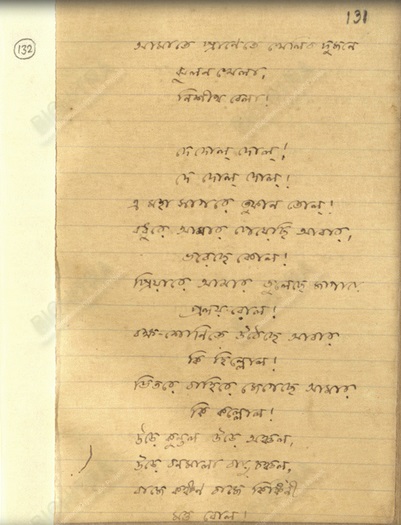 131
132
আমাতে প্রাণেতে খেলিব দুজনে
ঝুলন খেলা,
নিশীথ বেলা!
দে দোল্ দোল্!
দে দোল্ দোল্!
এ মহা সাগরে তুফান তোল্!
বধূরে আমার পেয়েছি আবার,
ভরেছে কোল!
প্রিয়ারে আমার তুলেছে জাগায়ে
প্রলয়-রোল!
বক্ষ-শোণিতে উঠেছে আবার
কি হিল্লোল!
ভিতরে বাহিরে জেগেছে আমার
কি কল্লোল!
উড়ে কুন্তল উড়ে অঞ্চল,
উড়ে বনমালা বায়ু চঞ্চল,
বাজে কঙ্কণ বাজে কিঙ্কিণী
মত্ত বোল!